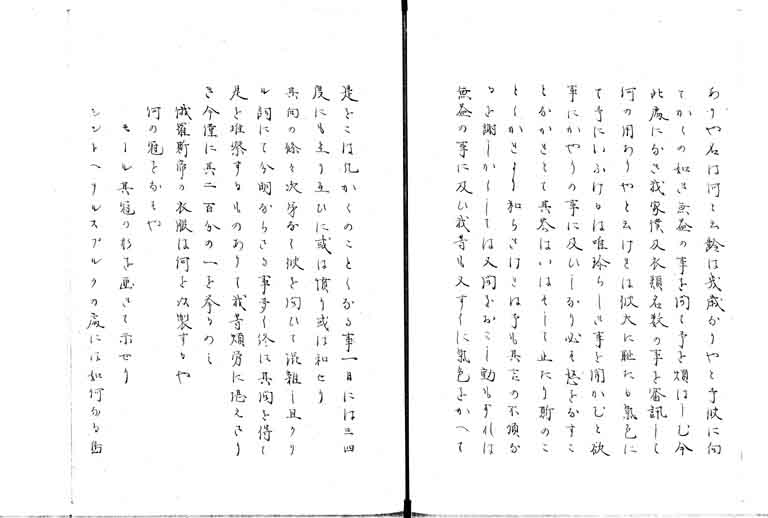 ありや名は何と云齢は幾歳かりやと予彼に向
てかくの如き無益の事を問て予を煩はしむ今
此處にかき我家僕及衣類名数の事を審訊して
何の用ありやと云けれは彼大に耻たる氣色に
て予にいふけるは唯珍らしき事を聞かむと欲
事にかやうの事に及いしかり必す怒をなすこ
とかかきとて其答はいはすして止たり斯のこ
とくかきより和らきけれは予も其言の不順か
るを謝しかくしては又問をおこし動もすれは
無益の事に及い我等も又すくに氣色をかへて
是をこは凡かくのことくかる事一日には三四
度にも至り互ひに或は憤り或は和せり
其向の條々次序かて彼を問いて混雑し且クリ
ル詞にて分明からさる事多く終に其問を得て
是を推察するものありて我等煩労に堪えさり
き今僅に其二百分の一を奉るのみ
俄羅斯帝の衣服は何を以製するや
何の冠をかむや
モール其冠の形を画きて示せり
シントヘテルスブルクの處には如何なる馬